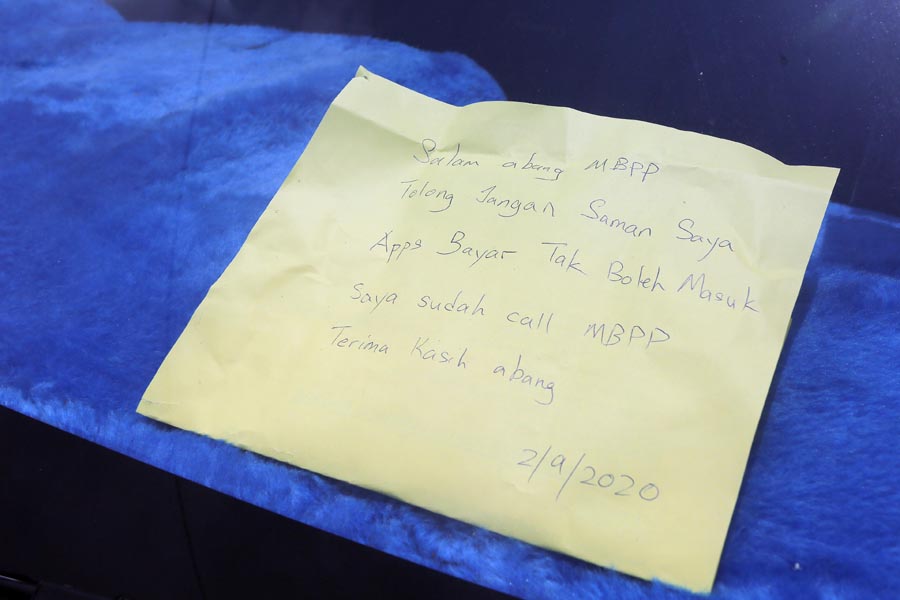 Salam abang MBPP
Tolong Jangan Saman Saya
Apps Bayar Tak Boleh Masuk
Saya sudah call MBPP
Terima Kasih abang
2/9/2020